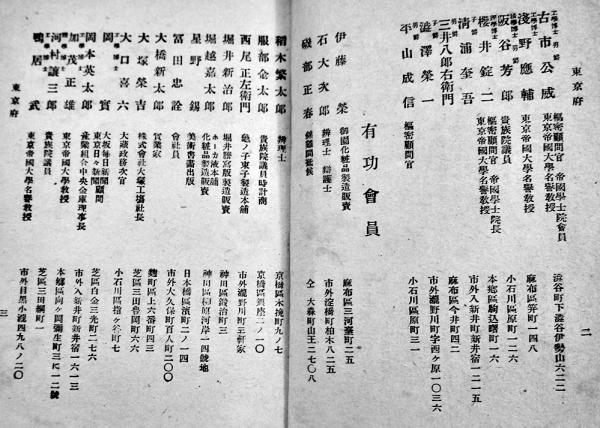 東京府
工學博士 男爵 古市公威 樞密顧問官 帝國學士院會員 東京帝國大學名譽教授 澁谷町下澁谷伊勢山六二二
工學博士 淺野應輔 東京帝國大學名譽教授 麻布區笄町一四八
男爵 阪谷芳郎 貴族院議員 小石川區原町一二六
理學博士 男爵 櫻井錠二 樞密顧問官 帝國學士院長 東京帝國大學名譽教授 本鄕區駒込曙町一六
清浦奎吾 市外入新井町新井宿一二一五
男爵 三井八郎右衛門 麻布區今井町四二
子爵 澁澤榮一 市外瀧野川町字西ヶ原一〇三六
男爵 平山成信 樞密顧問官 小石川區原町三一
有功會員
伊藤榮 御園化粧品製造販賣 麻布區三河臺町二五
石大次郎 辨理士 辯護士 市外淀橋町柏木八二五
磯部正春 仝 大森町山王二七〇八
二
稻木繁太郎 辨理士 京橋區木挽町九ノ七
服部金太郎 貴族院議員時計商 京橋區銀座二ノ一〇
西尾正左衛門 龜ノ子束子製造本舖 市外瀧野川町三軒家
堀井新治郎 堀井謄寫版製造販賣 神田區鍛冶町三
堀越嘉太郎 ホーカー液本舖 化粧品製造販賣 神田區柳原河岸一四號地
星野錫 美術書畵出版 日本橋區濱町二ノ一四
冨田忠詮 會社員 市外大久保町百人町二〇〇
大橋新太郎 實業家 麴町區上六番町四三
大塚榮吉 株式會社大塚工塲社長 芝區三田豐岡町六六
大口喜六 大藏政務次官 小石川區指ヶ谷町七
岡實 大坂每日新聞顧問 東京日々新聞顧問 芝區白金三光町二七六
岡本英太郎 產業組合中央金庫理事長 市外入新井町新井宿一六一三
加茂正雄 東京帝國大學教授 本鄕區向ヶ岡彌生町三に一二號
河村讓三郎 貴族院議員 芝區三田綱町一
鴨居武 東京帝國大學名譽教授 市外目黑小瀧四九八ノ二〇
東京府
三